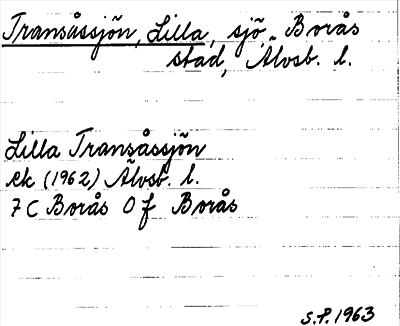 Transåssjön, Lilla, sjö, Borås
stad, Älvsb. l.
Lilla Transåssjön
ek (1962) Älvsb. l.
7 C Borås O f Borås
S.P. 1963